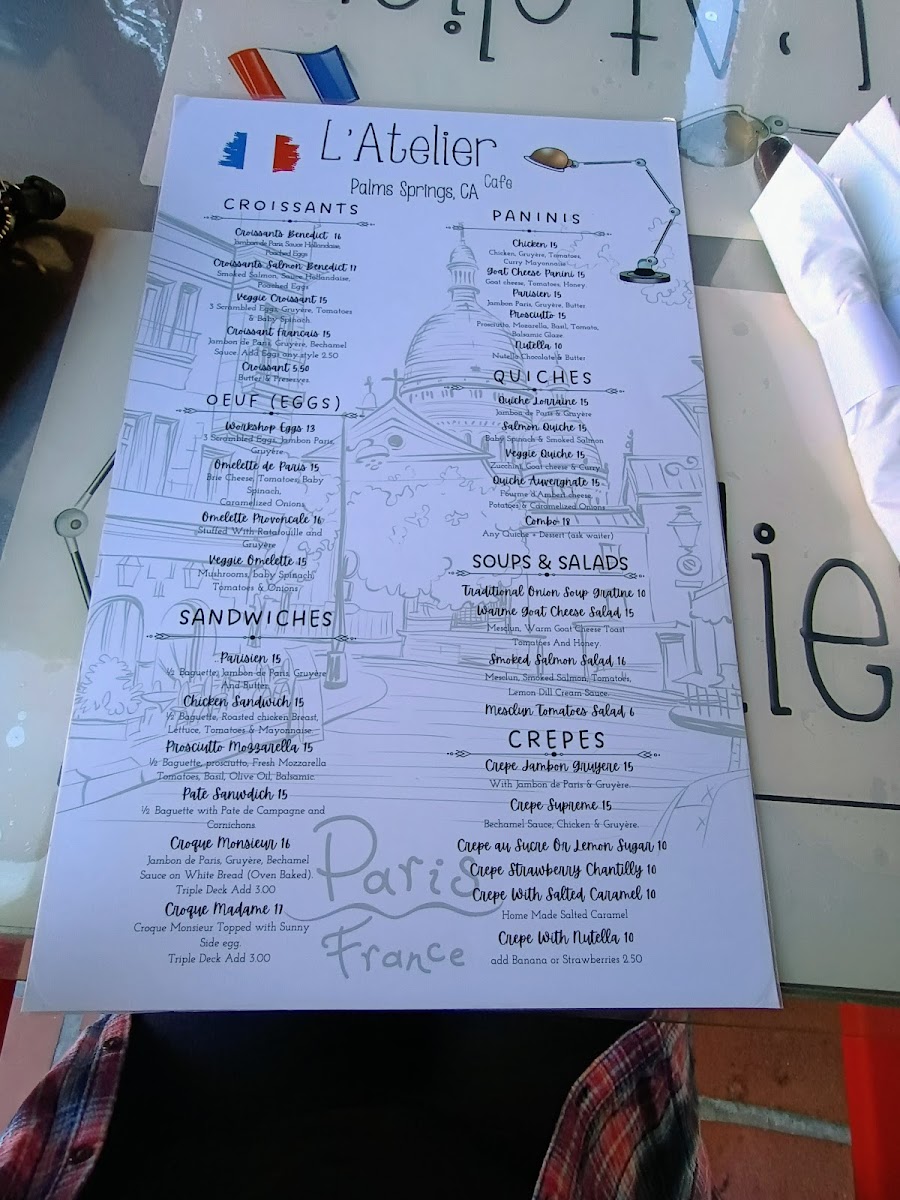 L'Atelier
Cafe
Palms Springs, CA
CROISSANTS
Croissants Benedict 16
Jambon de Paris, Sauce Hollandaise,
Poached Eggs
Croissants Salmon Benedict 17
Smoked Salmon, Sauce Hollandaise,
Poached Eggs
Veggie Croissant 15
3 Scrambled Eggs, Gruyère, Tomatoes
& Baby Spinach.
Croissant Francais 15
Jambon de Paris, Gruyère, Bechamel
Sauce. Add Eggs any style 2.50
Croissant 5.50
Butter & Preserves.
OEUF (EGGS)
Workshop Eggs 13
3 Scrambled Eggs, Jambon Paris,
Gruyère
Omelette de Paris 15
Brie Cheese, Tomatoes, Baby
Spinach,
Caramelized Onions
Omelette Provoncale 16
Stuffed With Ratatouille and
Gruyère
Veggie Omelette 15
Mushrooms, baby Spinach,
Tomatoes & Onions
SANDWICHES
Parisien 15
½ Baguette, Jambon de Paris, Gruyère
And Butter.
Chicken Sandwich 15
½ Baguette, Roasted chicken Breast,
Lettuce, Tomatoes & Mayonnaise.
Prosciutto Mozzarella 15
½ Baguette, prosciutto, Fresh Mozzarella
Tomatoes, Basil, Olive Oil, Balsamic.
Pate Sanwdich 15
½ Baguette with Pate de Campagne and
Cornichons.
Croque Monsieur 16
Jambon de Paris, Gruyère, Bechamel
Sauce on White Bread (Oven Baked).
Triple Deck Add 3.00
Croque Madame 17
Croque Monsieur Topped with Sunny
Side egg.
Triple Deck Add 3.00
PANINIS
Chicken 15
Chicken, Gruyère, Tomatoes,
Curry Mayonnaise
Goat Cheese Panini 15
Goat cheese, Tomatoes, Honey.
Parisien 15
Jambon Paris, Gruyère, Butter
Prosciutto 15
Prosciutto, Mozarella, Basil, Tomato,
Balsamic Glaze
Nutella 10
Nutella Chocolate & Butter
QUICHES
Quiche Lorraine 15
Jambon de Paris & Gruyère
Salmon Quiche 15
Baby Spinach & Smoked Salmon
Veggie Quiche 15
Zucchini, Goat cheese & Curry
Quiche Auvergnate 15
Fourme d'Ambert cheese,
Potatoes & Caramelized Onions
Combo 18
Any Quiche + Dessert (ask waiter)
SOUPS & SALADS
Traditional Onion Soup Gratine 10
Warme Goat Cheese Salad 15
Mesclun, Warm Goat Cheese Toast
Tomatoes And Honey.
Smoked Salmon Salad 16
Mesclun, Smoked Salmon, Tomatoes,
Lemon Dill Cream Sauce.
Mesclun Tomatoes Salad 6
CREPES
Crepe Jambon Gruyere 15
With Jambon de Paris & Gruyère.
Crepe Supreme 15
Bechamel Sauce, Chicken & Gruyère.
Crepe au Sucre Or Lemon Sugar 10
Crepe Strawberry Chantilly 10
Crepe With Salted Caramel 10
Home Made Salted Caramel
Crepe With Nutella 10
add Banana or Strawberries 2.50
Paris
France
lie
L'Atelie